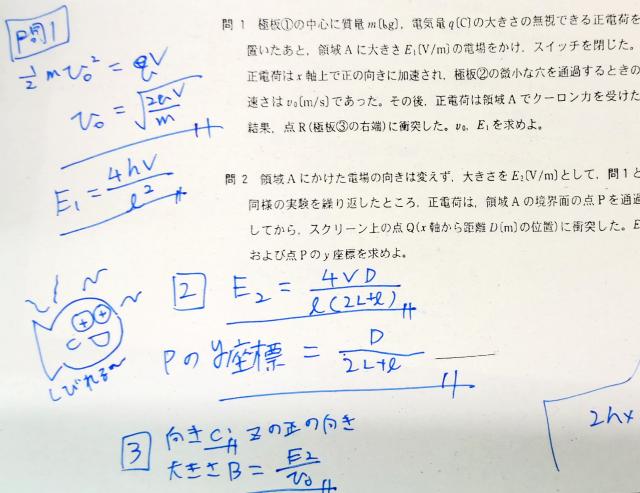 問1
1/2 mv₀² = qV
v₀ = √(2qV/m)
E₁ = 4hV/l²
問1 極板①の中心に質量m[kg],電気量q[C]の大きさの無視できる正電荷を
置いたあと,領域Aに大きさE₁[V/m]の電場をかけ,スイッチを閉じた。
正電荷はx軸上で正の向きに加速され,極板②の微小な穴を通過するときの
速さはv₀[m/s]であった。その後,正電荷は領域Aでクーロン力を受けた
結果,点R(極板③の右端)に衝突した。v₀,E₁を求めよ。
問2 領域Aにかけた電場の向きは変えず,大きさをE₂[V/m]として,問1と
同様の実験を繰り返したところ,正電荷は,領域Aの境界面の点Pを通過
してから,スクリーン上の点Q(x軸から距離D[m]の位置)に衝突した。E
および点Pのy座標を求めよ。
2 E₂ = 4VD/l(2L+l)
Pのy座標 = D/2L+l
しびれる〜
3 向きC, zの正の向き
大きさB = E₂/v₀
2hx